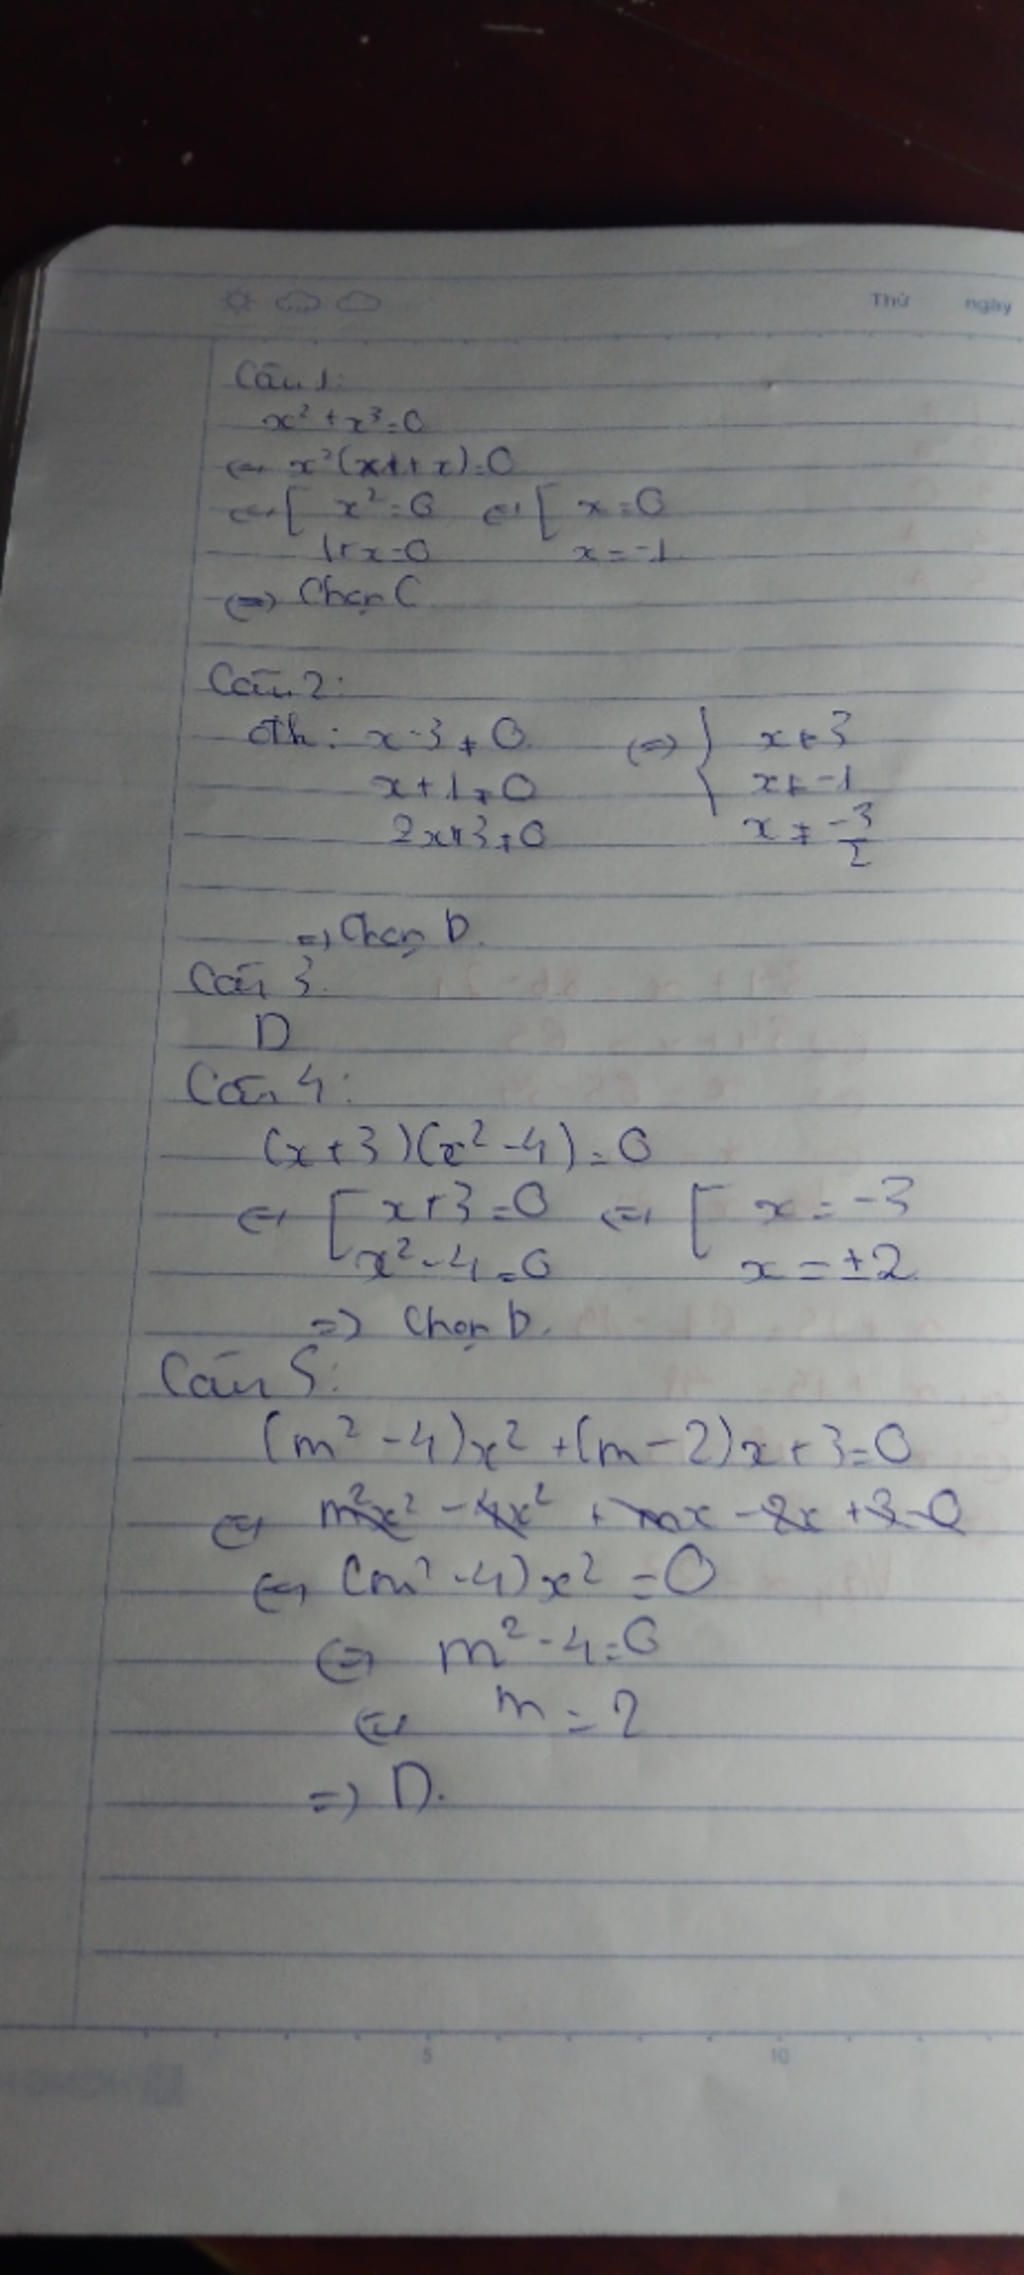 Thứ ngày
Câu 1:
x² + x³ = 0
⇔ x²(1 + x) = 0
⇔ [ x² = 0 ⇔ [ x = 0
1 + x = 0 x = -1
⇔ Chọn C
Câu 2:
đk: x - 3 ≠ 0 ⇔ { x ≠ 3
x + 1 ≠ 0 x ≠ -1
2x + 3 ≠ 0 x ≠ -3/2
⇒ Chọn D.
Câu 3.
D
Câu 4:
(x + 3)(x² - 4) = 0
⇔ [ x + 3 = 0 ⇔ [ x = -3
x² - 4 = 0 x = ±2
⇒ Chọn D.
Câu 5:
(m² - 4)x² + (m - 2)x + 3 = 0
⇔ m²x² - 4x² + mx - 2x + 3 = 0
⇔ (m² - 4)x² = 0
⇔ m² - 4 = 0
⇔ m = 2
⇒ D.
5 10